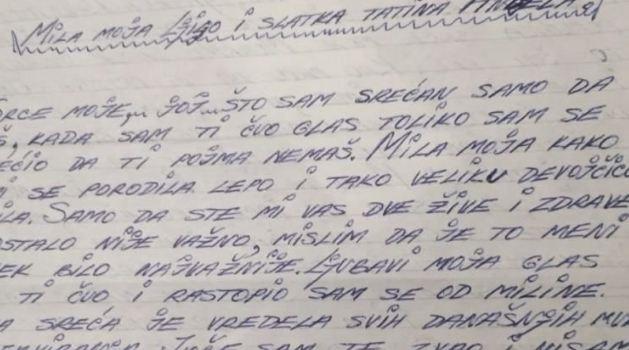 MILA MOJA LJIGO I SLATKA TATINA
SRCE MOJE,,, JOJ... ŠTO SAM SREĆAN SAMO DA
KADA SAM TI ČUO GLAS TOLIKO SAM SE
DA TI POJMA NEMAŠ. MILA MOJA KAKO
SE PORODILA LEPO I TAKO VELIKU DEVOJČICU
SAMO DA STE MI VAS DVE ŽIVE I ZDRAVE
OSTALO NIJE VAŽNO, MISLIM DA JE TO MENI
BILO NAJVAŽNIJE. LJUBAVI MOJA GLAS
TI ČUO I RASTOPIO SAM SE OD MILINE.
SREĆA JE VREDELA SVIH DANAŠNJIH
SAM TE ZVAO I NISAM